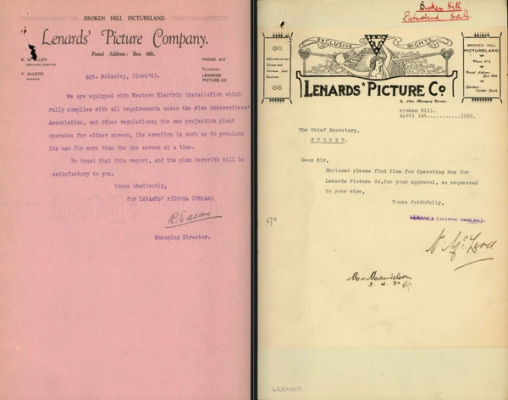 BROKEN HILL PICTURELAND
Lenards' Picture Company.
Postal Address: Box 6th.
MANAGING DIRECTOR
F. McLEOD
SECRETARY
PHONE 412
LENARDS
PICTURE CO
Sgt. McCauley, (Cont'd).
We are equipped with Western Electric installation which
fully complies with all requirements under the Fire Underwriters'
Association, and other regulations; the one projection plant
operates for either screen, its erection is such as to preclude
its use for more than the one screen at a time.
We trust that this report, and the plan herewith will be
satisfactory to you.
Yours obediently,
for LENARDS' PICTURE
Managing Director.
Broken Hill
Pictureland Hall
EXCLUSIVE RIGHTS
LENARDS' PICTURE Co
BROKEN HILL
PICTURELAND
Broken Hill.
April 1st..........1930.
The Chief Secretary,
SYDNEY.
Dear Sir,
Enclosed please find Plan for Operating Box for
Lenards Picture Co, for your approval, as requested
in your wire,
Yours faithfully,
McLeod
3. 4. 30